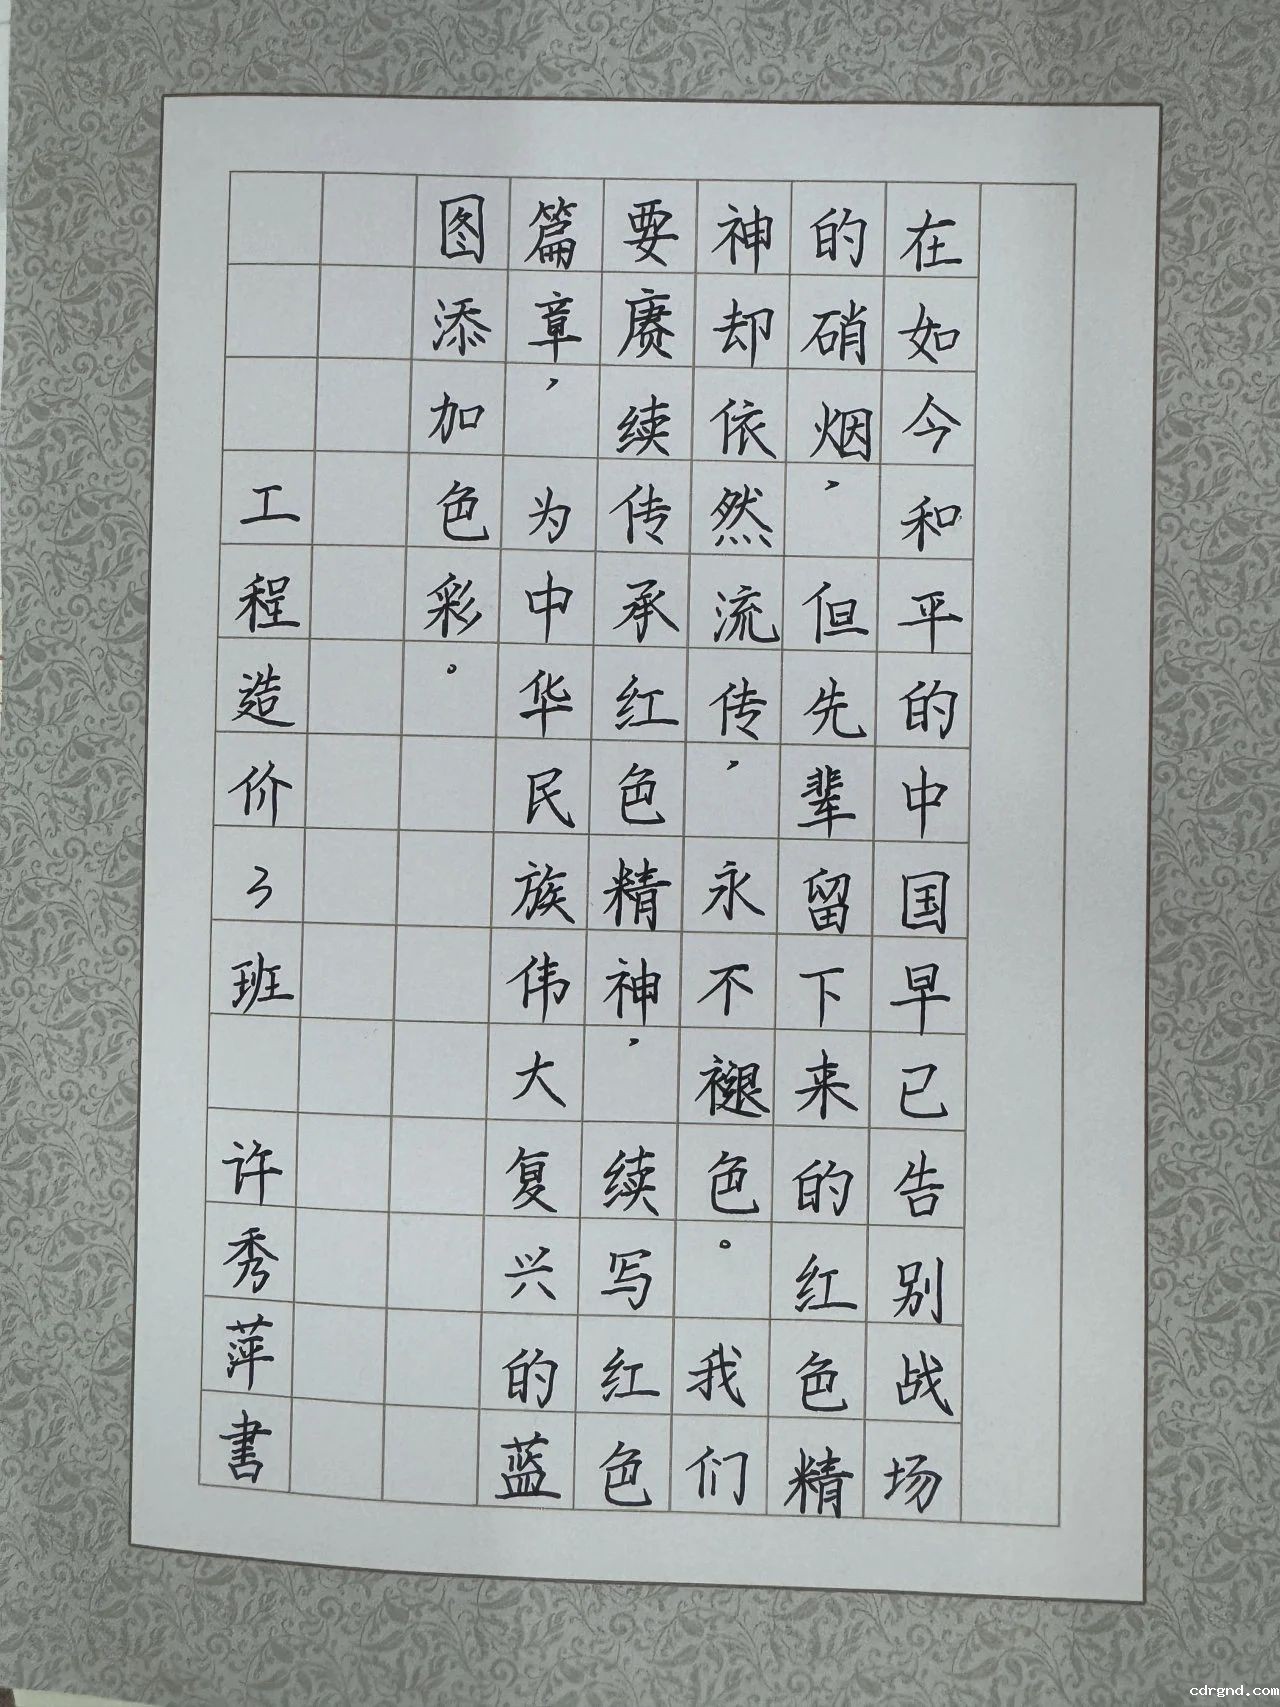 在如今和平的中国早已告别战场
的硝烟，但先辈留下来的红色精
神却依然流传，永不褪色。我们
要赓续传承红色精神，续写红色
篇章，为中华民族伟大复兴的蓝
图添加色彩。
工程造价3班 许秀萍書
cdrgnd.com